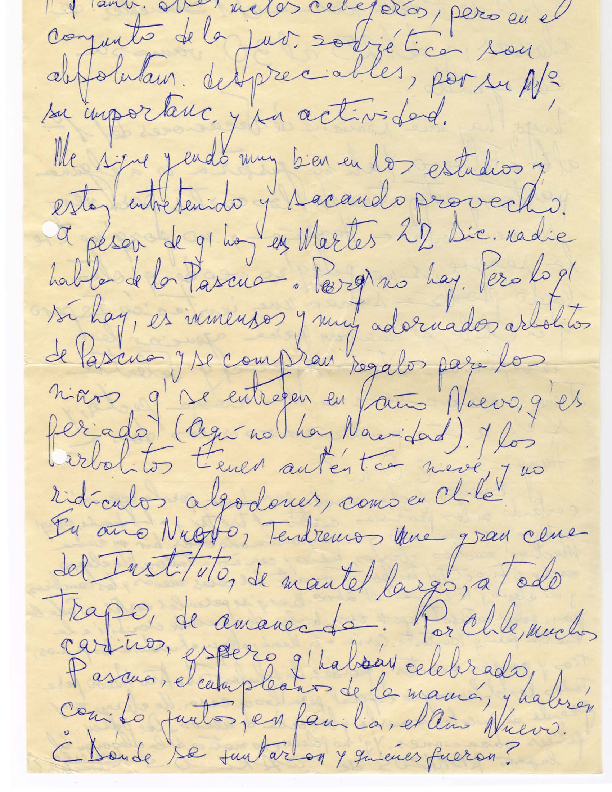 otros melos calegoros, pero en el
conjunto de la juv. soviética son
absolutam. despreciables, por su Nº
su importanc. y su actividad.
Me sigue yendo muy bien en los estudios y
estoy entretenido y sacando provecho.
A pesar de q' hoy es Martes 22 Dic. nadie
habla de la Pascua. Porq' no hay. Pero lo q'
sí hay, es inmensos y muy adornados arbolitos
de Pascua y se compran regalos para los
niños q' se entregan en año Nuevo, q' es
feriado (Aquí no hay Navidad). Y los
arbolitos tienen auténtica nieve, y no
ridículos algodones, como en Chile
En año Nuevo, Tendremos una gran cena
del Instituto, de mantel largo, a todo
Trapo, de amanecida. Por Chile, muchos
cariños, espero q' habrán celebrado
Pascua, el cumpleaños de la mamá, y habrán
comido juntos, en familia, el Año Nuevo.
¿Dónde se juntaron y quiénes fueron?